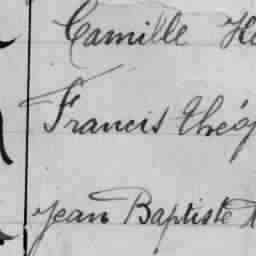 Camille
Francis théo
Jean Baptiste